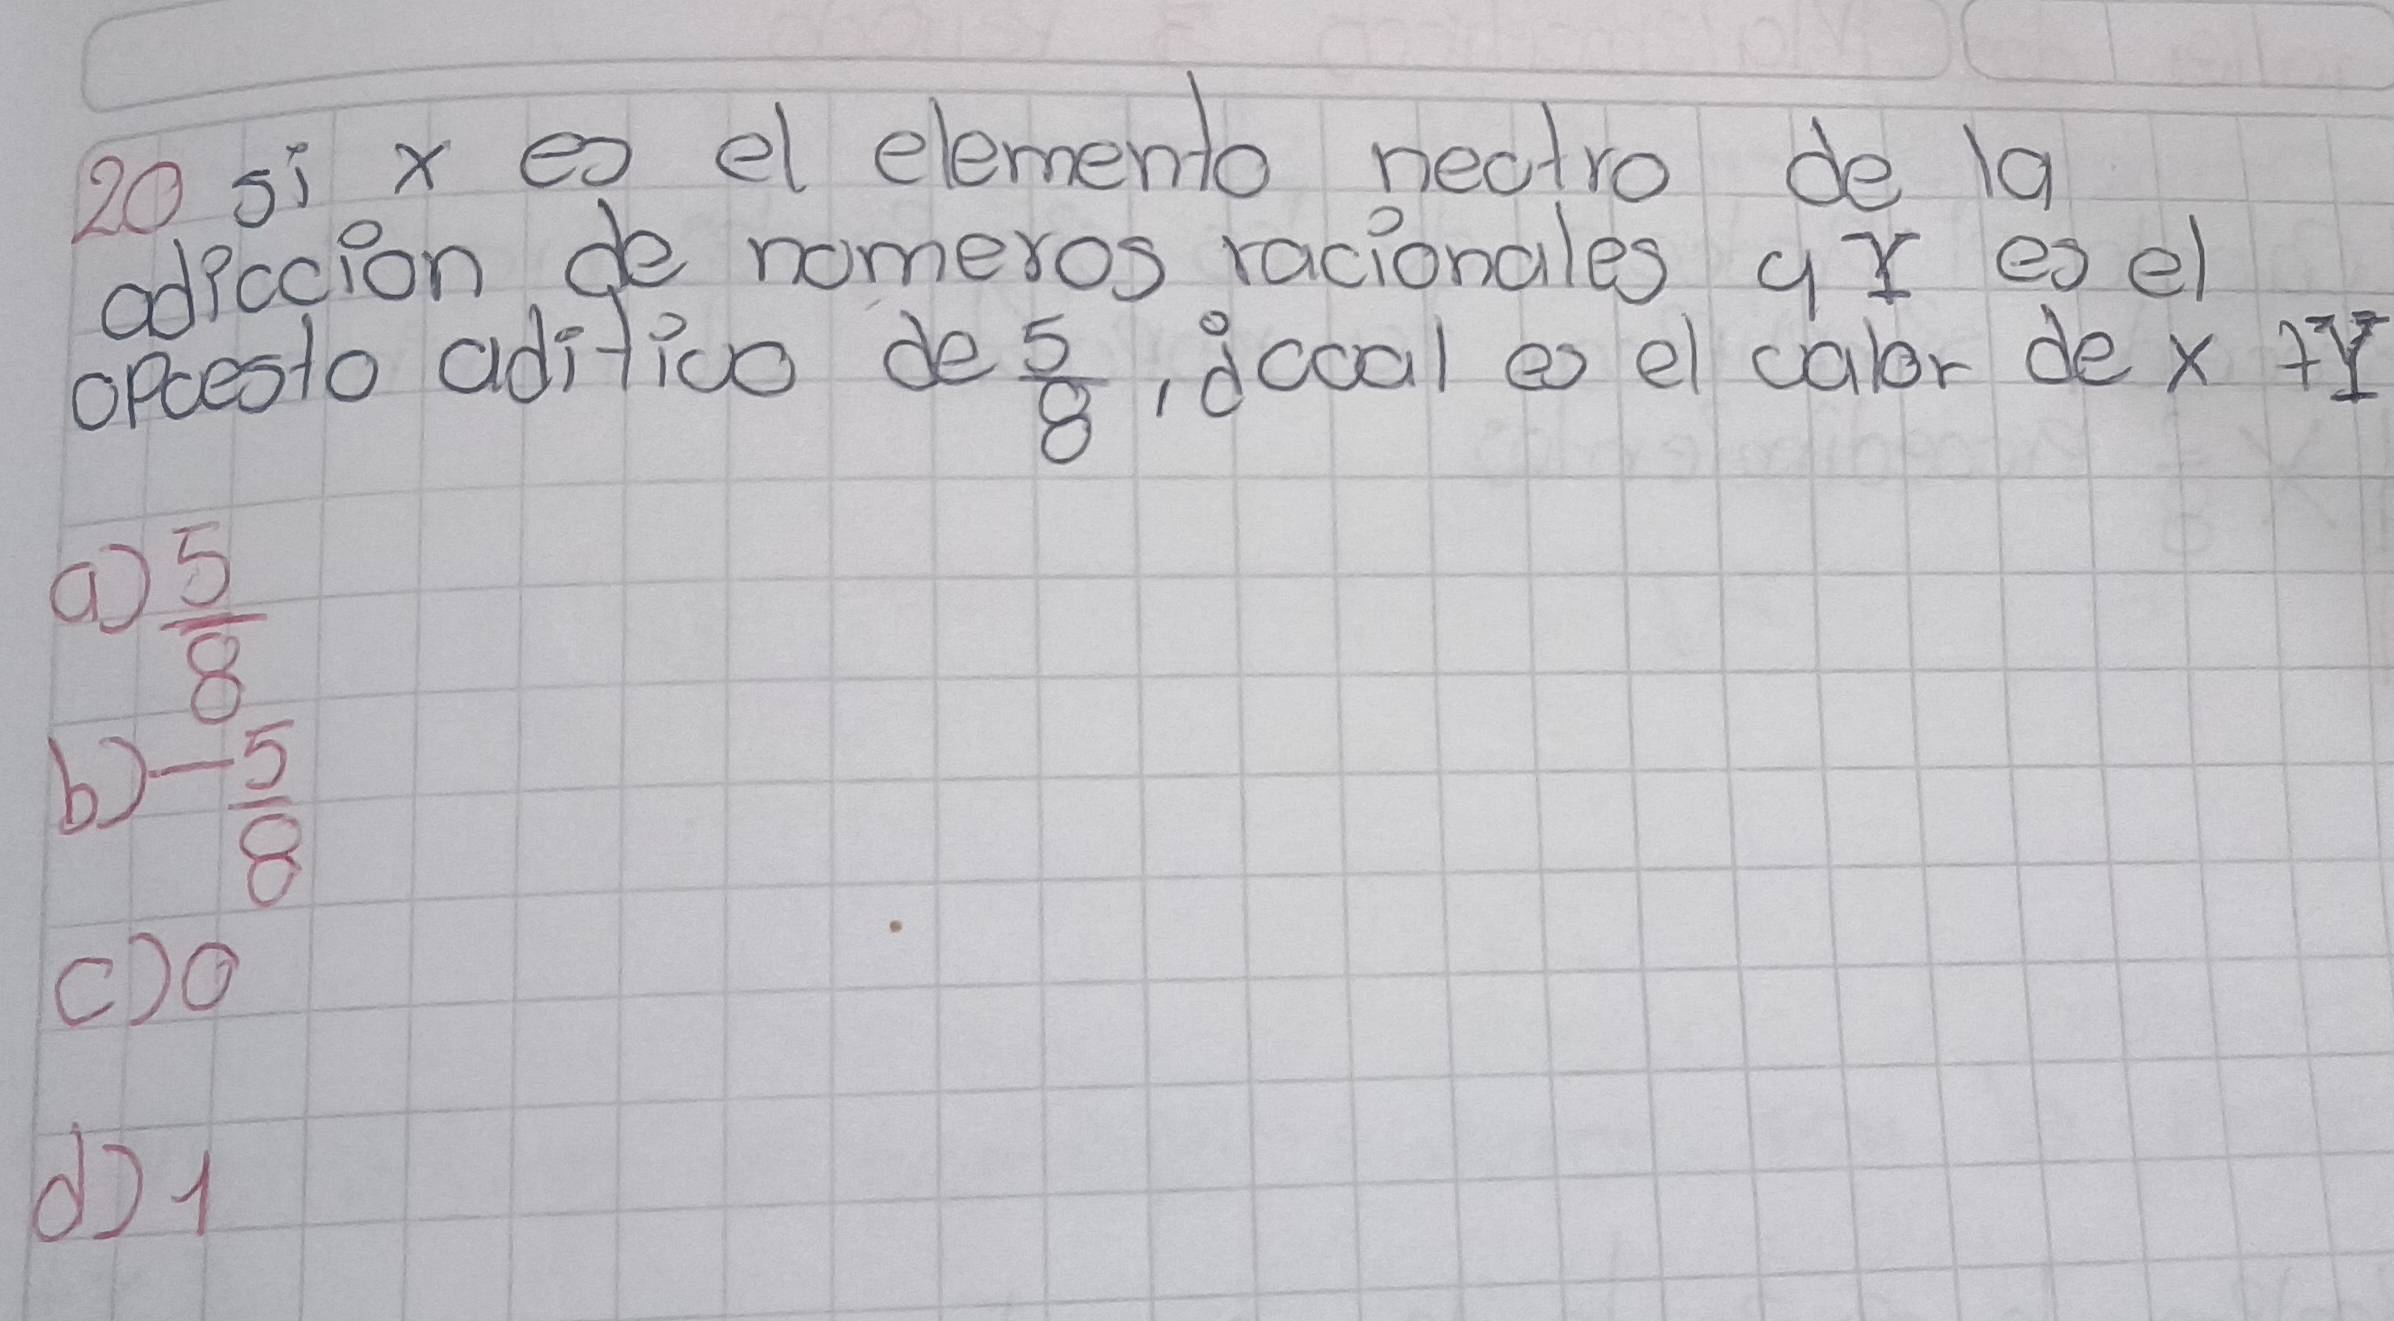 20 si x es el elemento neutro de la
adiccion de numeros racionales y Y es el
opuesto aditivo de 5/8, ¿cual es el valor de x + Y
a) 5/8
b) - 5/8
c) 0
d) 1